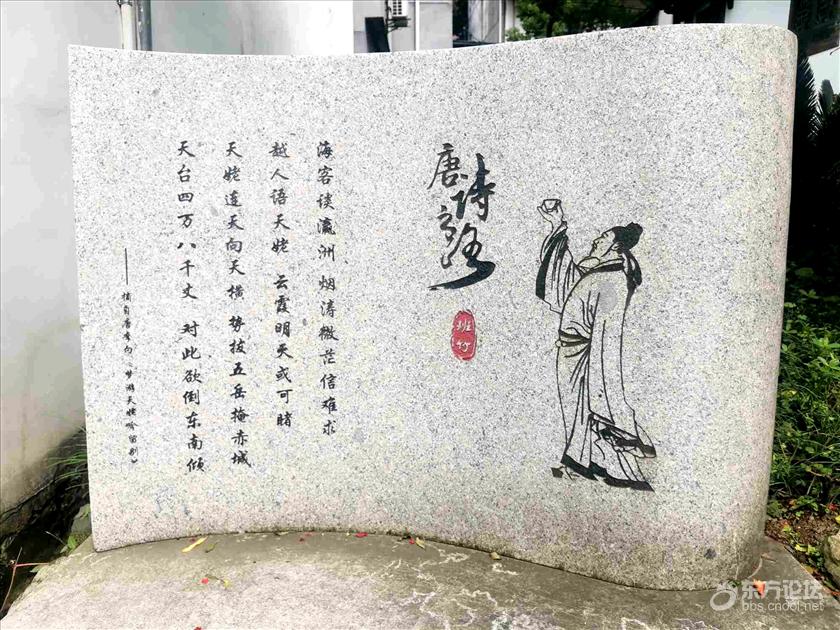 唐诗之路
班竹
海客谈瀛洲 烟涛微茫信难求
越人语天姥 云霞明灭或可睹
天姥连天向天横 势拔五岳掩赤城
天台四万八千丈 对此欲倒东南倾
——摘自唐李白《梦游天姥吟留别》
东方论坛
bbs.cnool.net